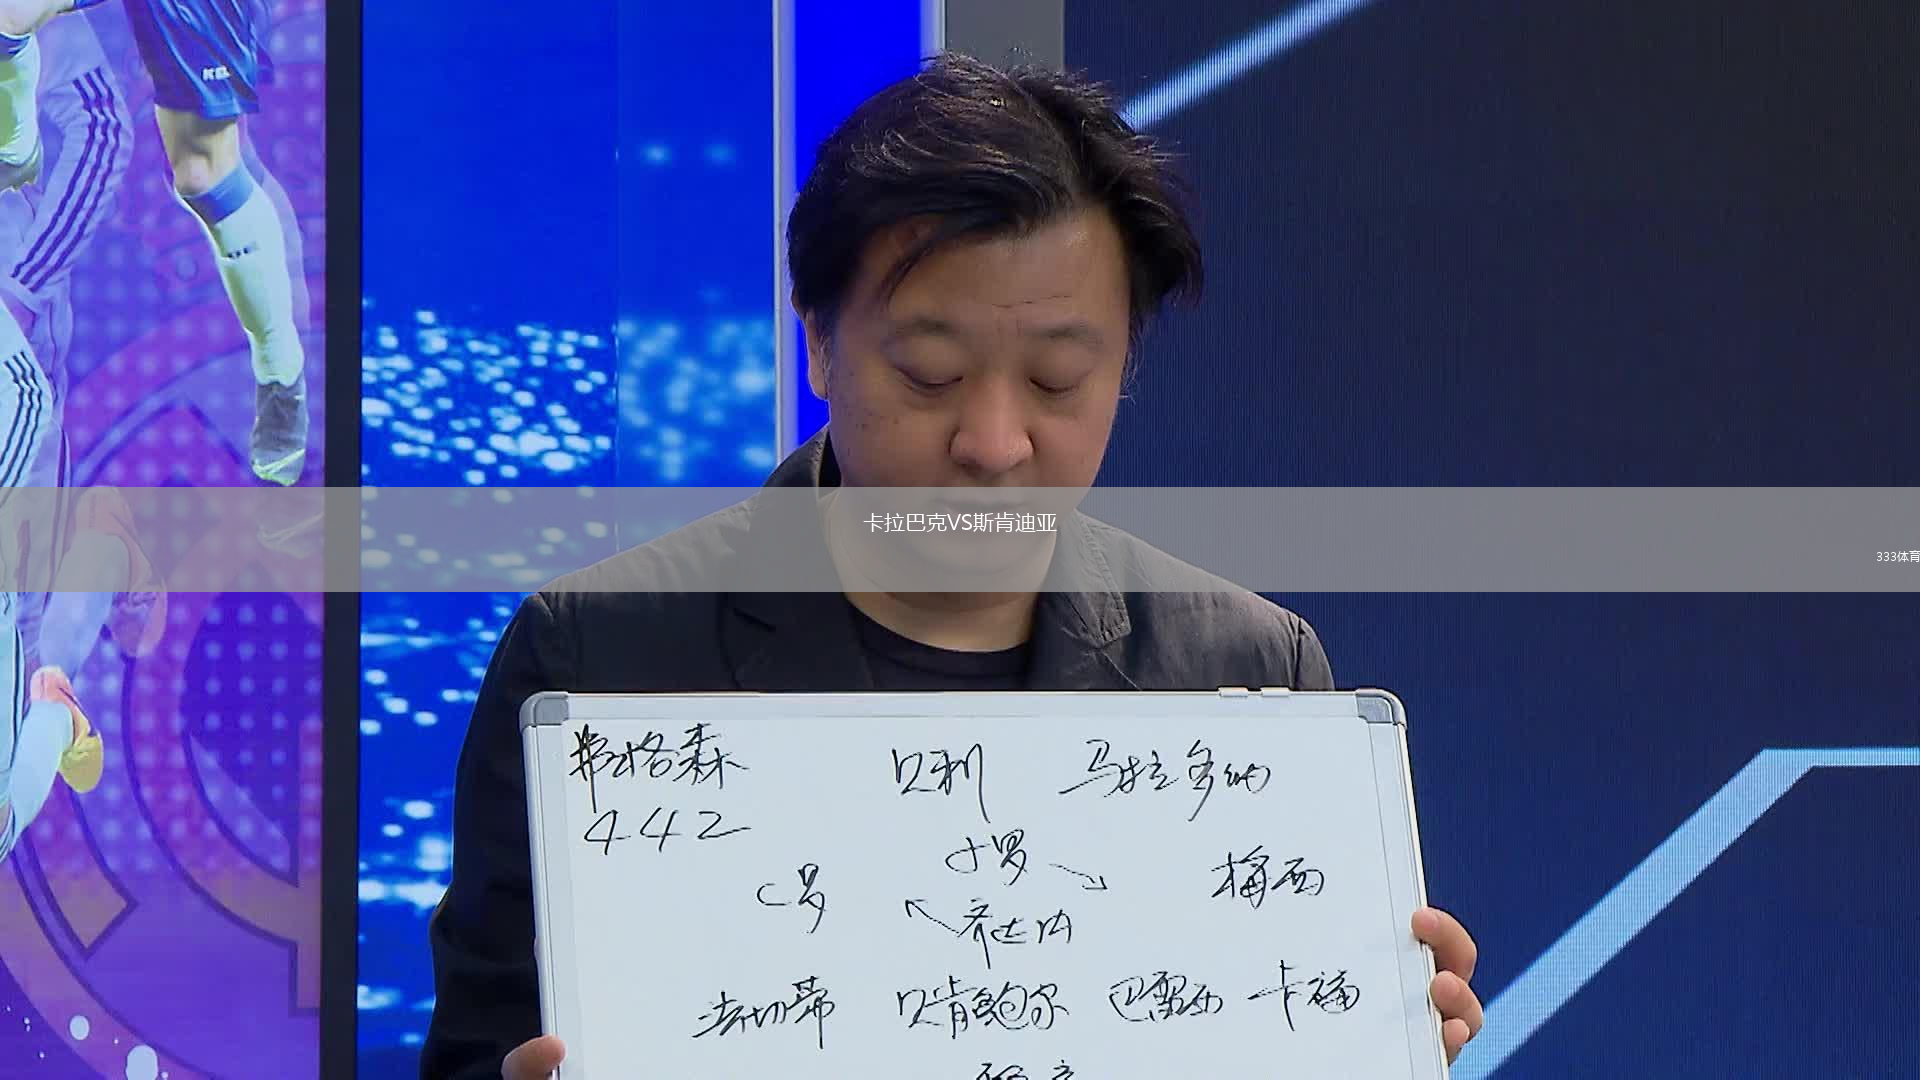 卡拉巴克VS斯肯迪亚
333体育
弗格森 贝利 马拉多纳
442
小罗
C罗 梅西
齐达内
法切蒂 贝肯鲍尔 巴雷西 卡福